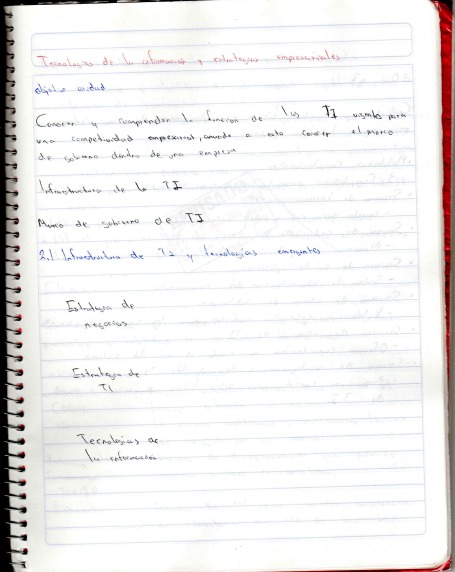 Tecnologias de la informacion y estrategias empresariales
objetivo unidad
Conocer y comprender la funcion de las TI para
una competividad empresarial, a esto conocer el marco
de gobierno dentro de una empresa
Infraestructura de la TI
Marco de gobierno de TI
2.1 Infraestructura de TI y tecnologías emergentes
Estrategia de
negocios
Estrategia de
TI
Tecnologias de
la informacion